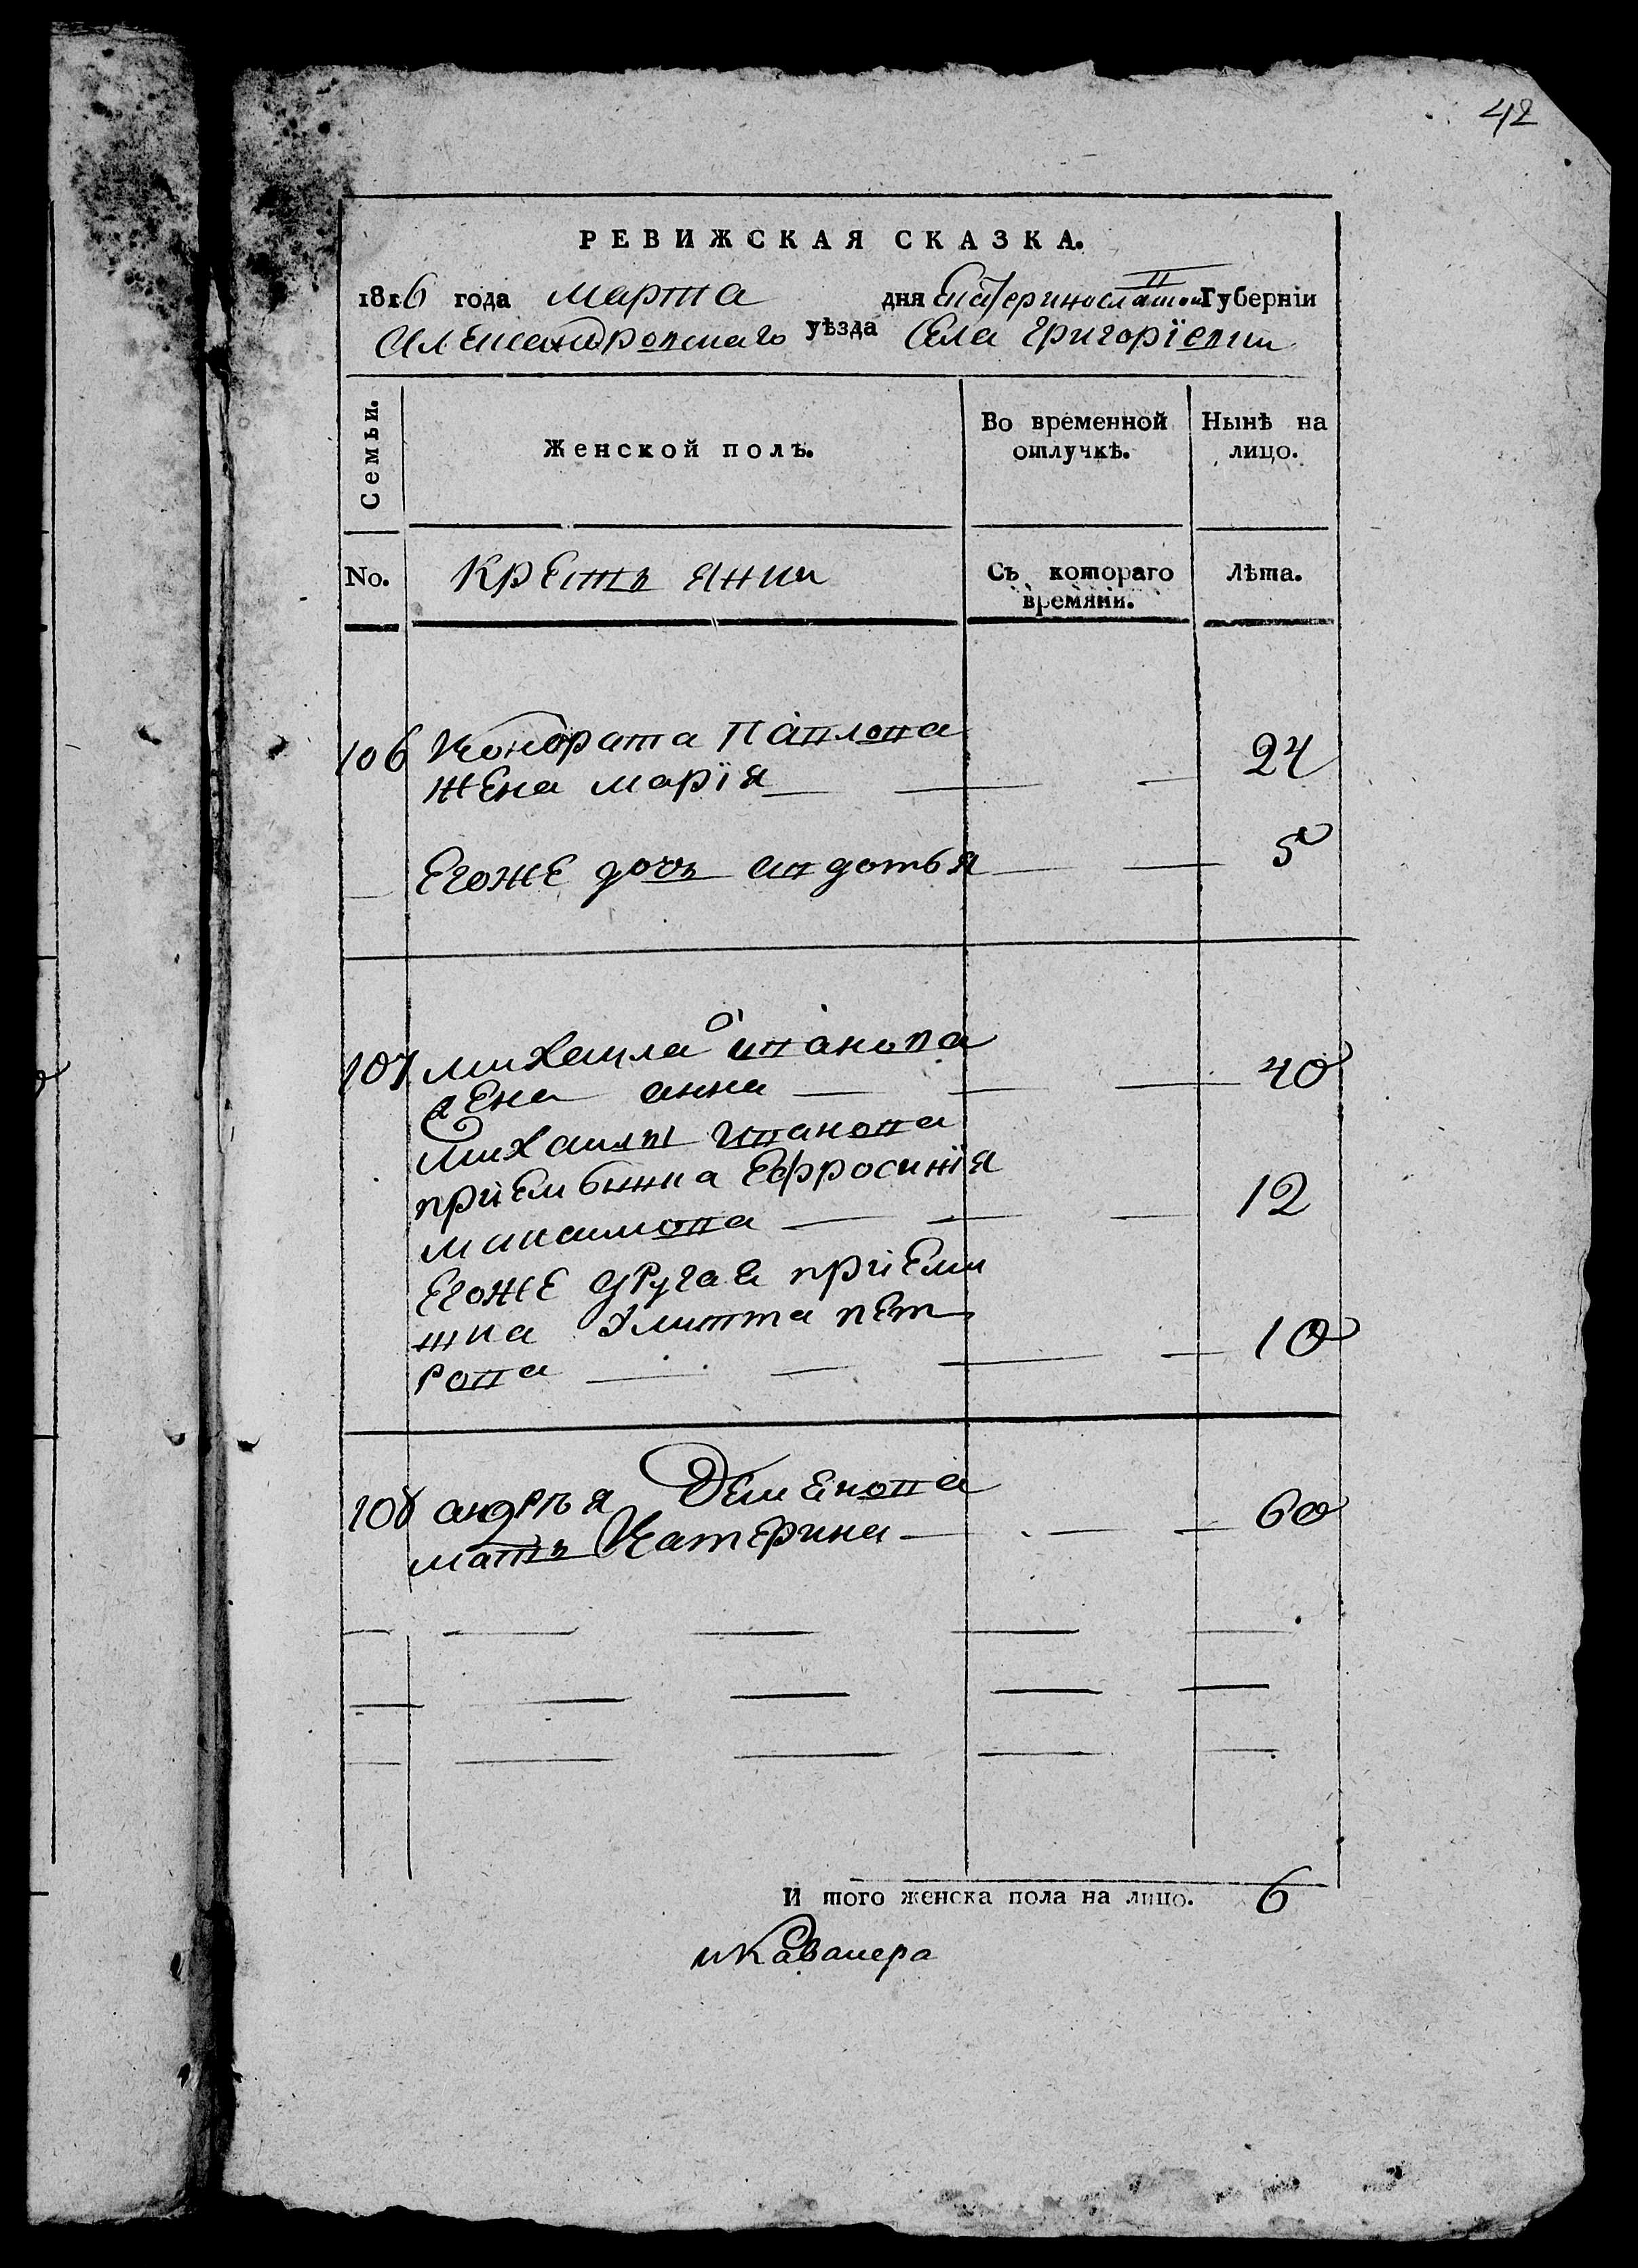 42
РЕВИЖСКАЯ СКАЗКА.
1816 года марта дня Екатеринославской Губерніи
Александровскаго уѣзда Села Григорїевки
Семьи.
Женской полъ.
Во временной отлучкѣ.
Нынѣ на лицо.
No.
Крестьянки
Съ котораго времяни.
Лѣта.
106 Кондрата Павлова
жена марїя 24
Егоже дочь авдотья 5
107 михайла иванова
жена анна 40
михайлы иванова
прїемышка Ефросинїя
максимова 12
Егоже другая прїемы
шка Улитта пет
рова 10
108 андрѣя Деменова
мать Катерина 60
И того женска пола на лицо. 6